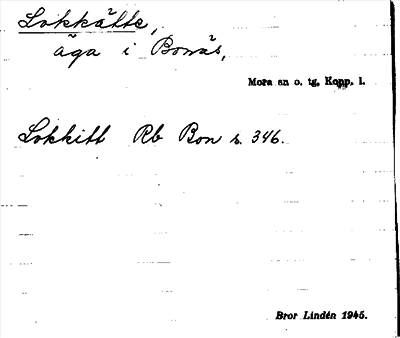 Lokkätte,
äga i Bonäs,
Mora sn o. tg. Kopp. l.
Lokkitt Rb Bon s. 346.
Bror Lindén 1945.